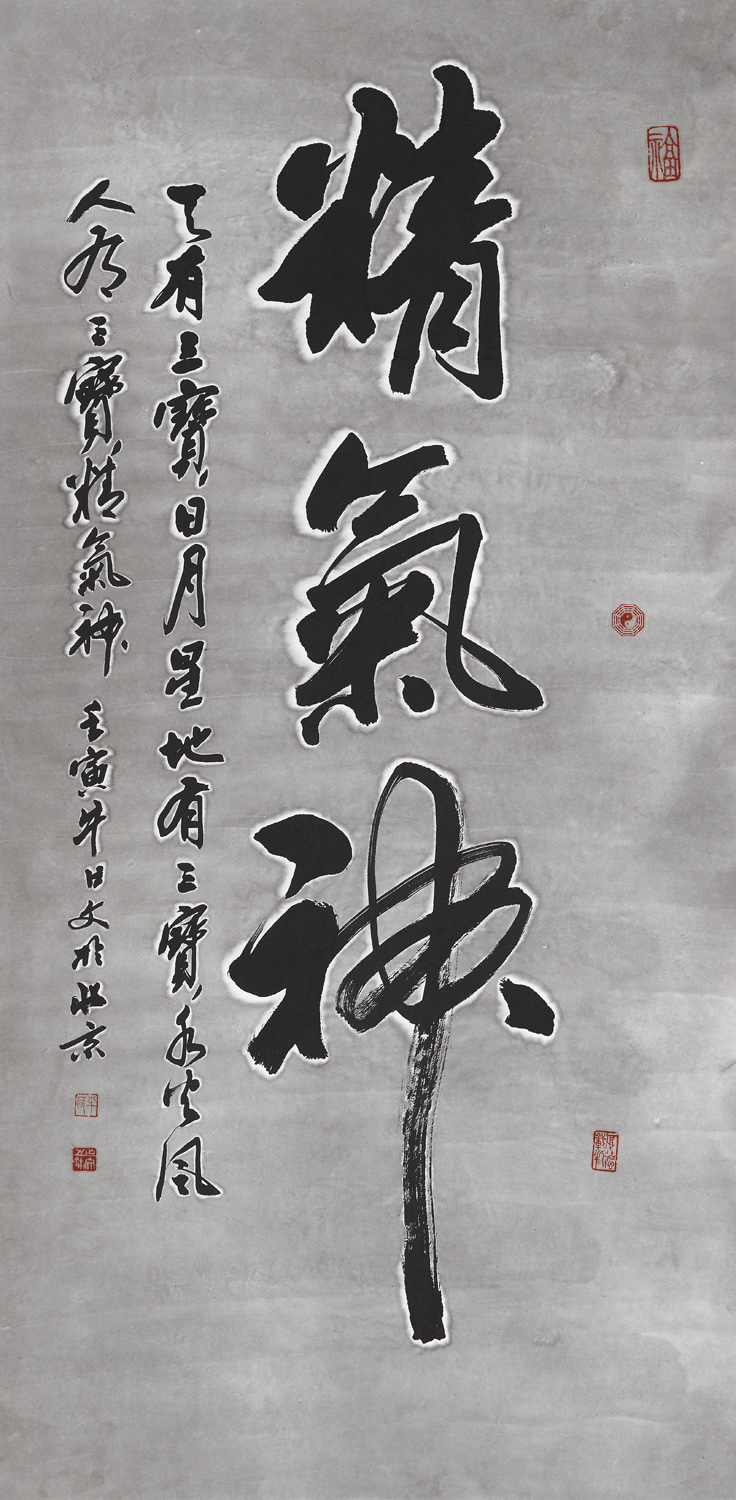 精氣神
天有三寶日月星地有三寶水火风
人有三寶精氣神 壬寅年日文於北京